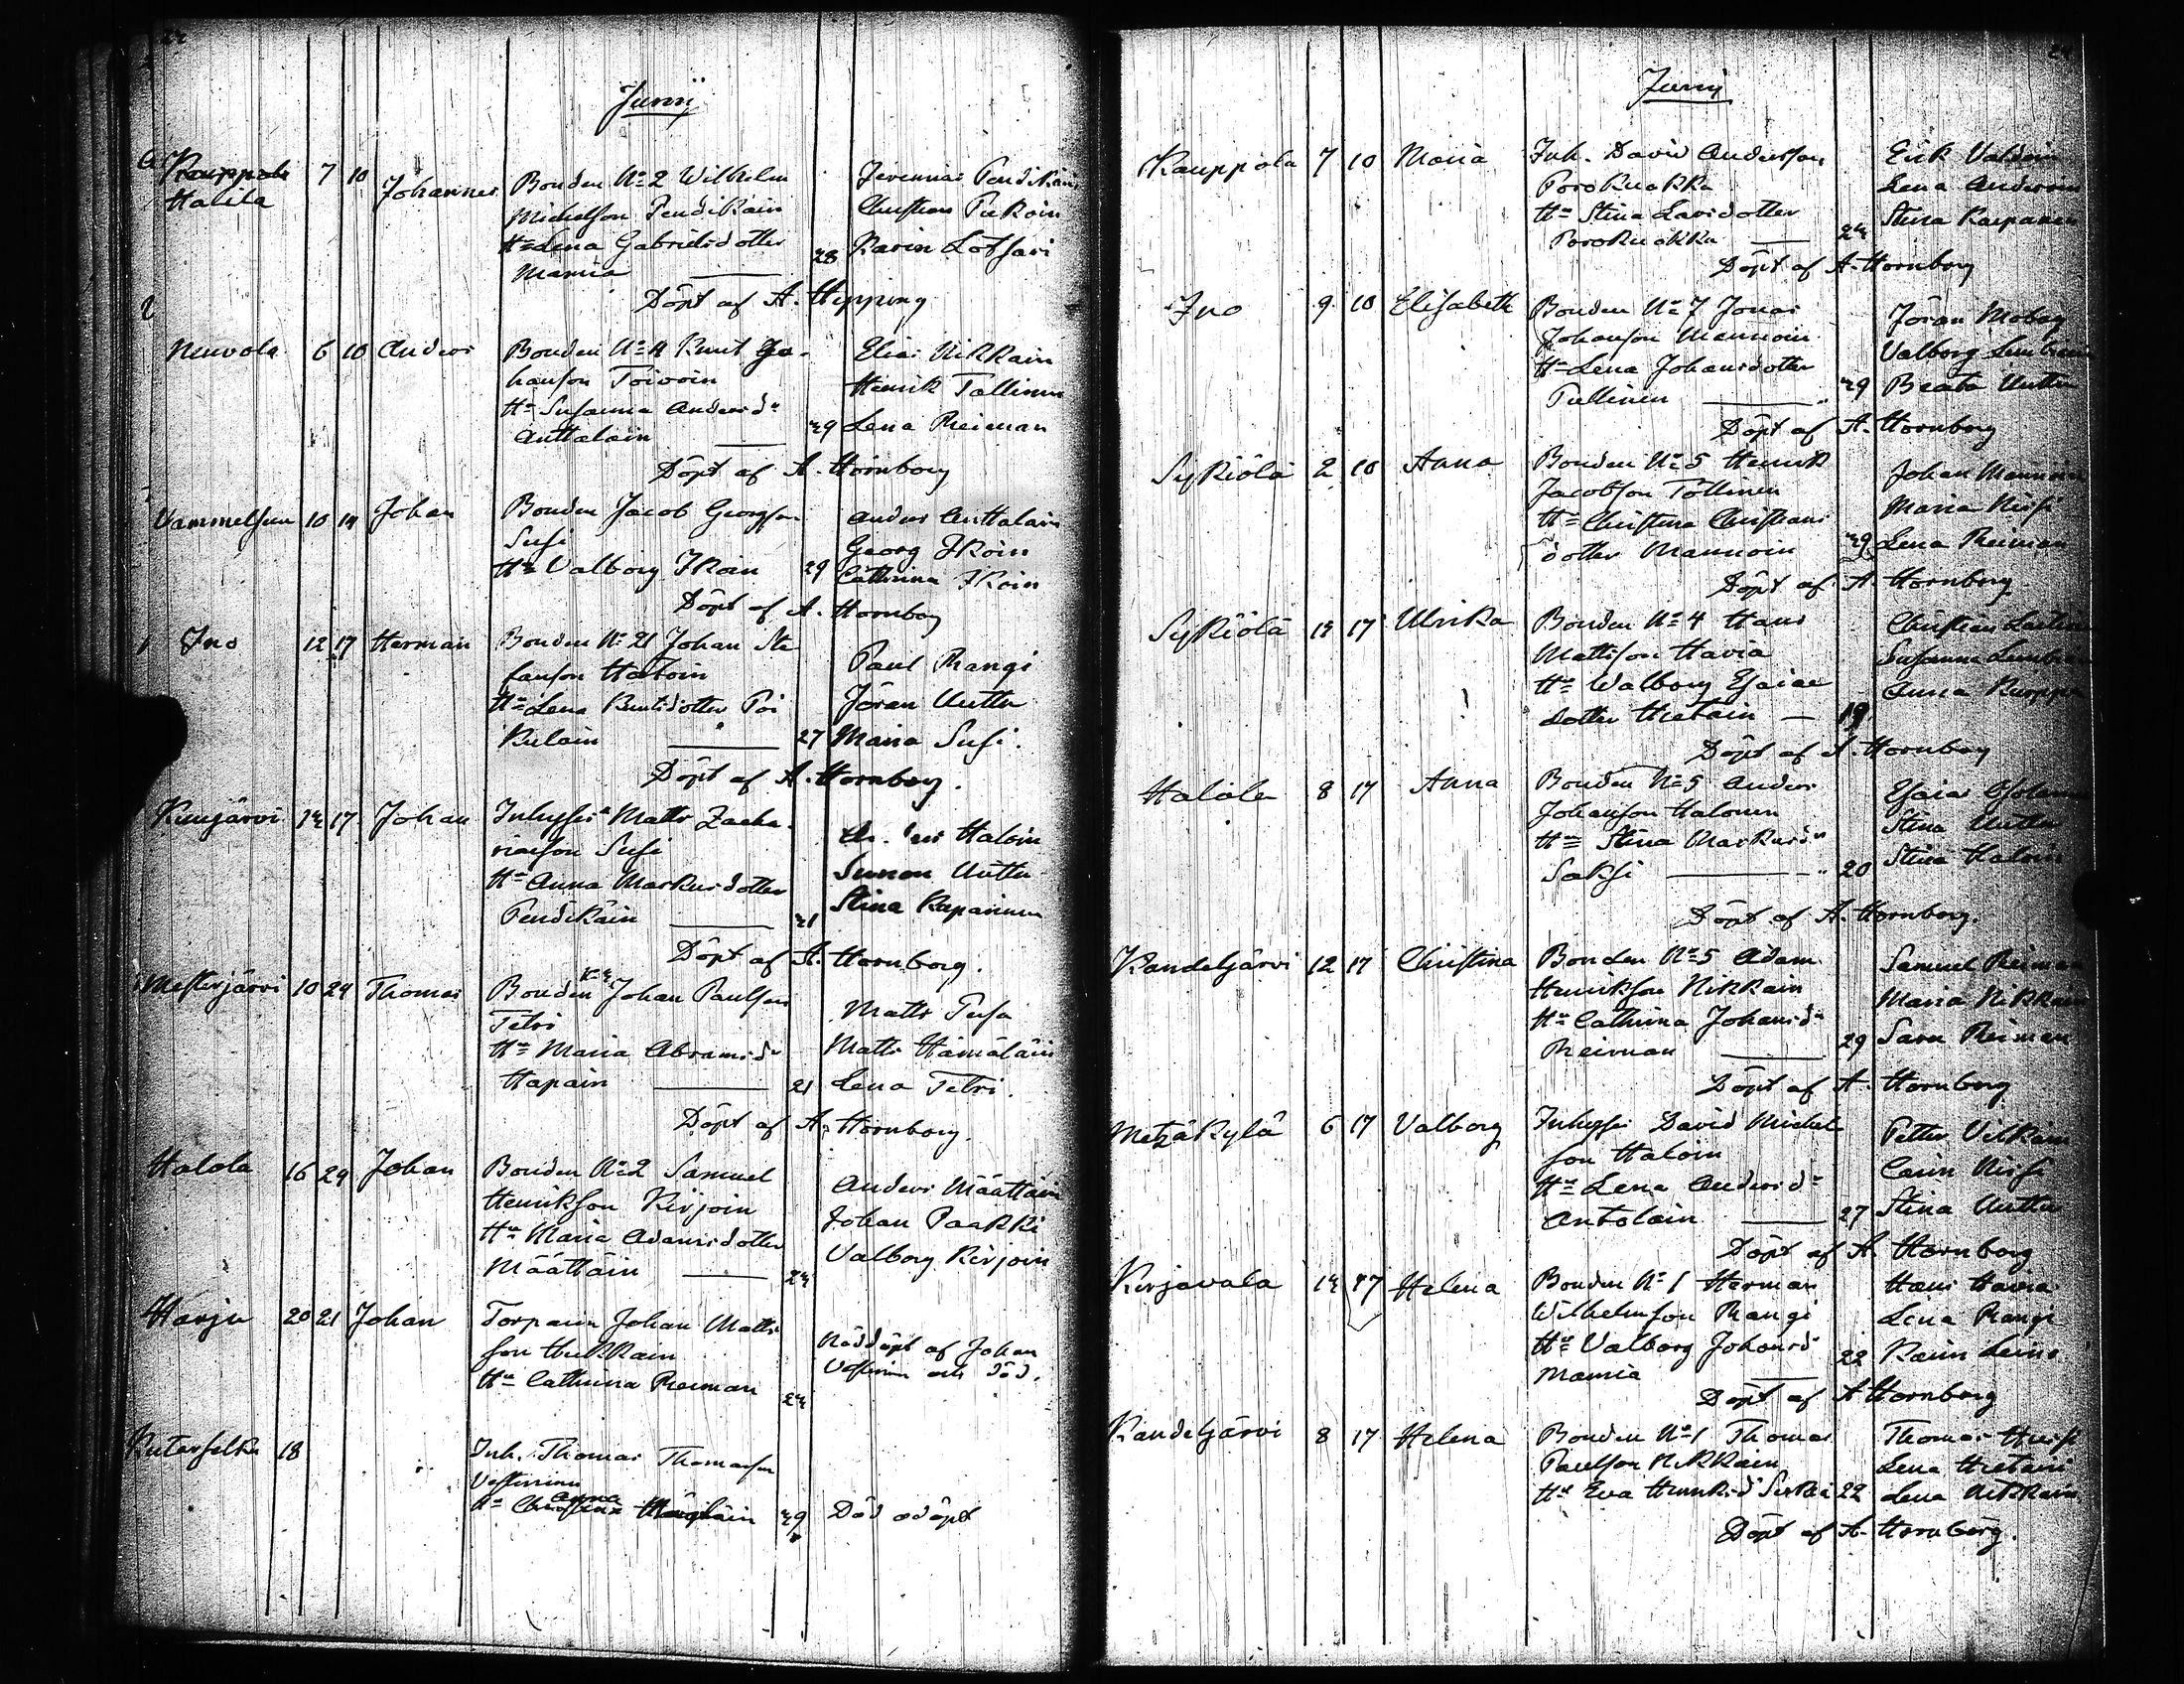 Junij
Halila 7 10 Johannes Bonden N=2 Wilhelm
Michelson Pendikäin
H=Lena Gabrielsdotter
Mamia 28
Jeremias Pendikäin
Christian Pukoin
Karin Lötjari
Döpt af A. Hipping
Neuvola 6 10 Anders Bonden N=4 Knut Jo-
hanson Toivoin
H= Susanna Andersd=
Anttalain 29
Elias Nikkain
Henrik Tollinen
Lena Reiman
Döpt af A. Hornborg
Vammelsuu 10 14 Johan Bonden Jacob Georgson
Susi
H= Valborg Ikoin 29
Anders Anttalain
Georg Ikoin
Cathrina Ikoin
Döpt af A. Hornborg
Ino 12 17 Herman Bonden N=21 Johan Ste
fanson Hatoin
H=Lena Knutsdotter Poi
kulain 27
Paul Rangi
Jöran Uuttu
Maria Susi.
Döpt af A. Hornborg.
17 Johan Inhyses Matts Zacha
riasson Susi
H=Anna Markusdotter
Pendikäin 21
Haloin
Simon Uuttu
Stina Kapainen
Döpt af A. Hornborg.
Mesterjärvi 10 24 Thomas Bonden Johan Paulson
Tetri
H= Maria Abramsd=
Hapain 21
Matts Pusa
Matts Hämäläin
Lena Tetri.
Döpt af A. Hornborg.
Halola 16 24 Johan Bonden N=2 Samuel
Henrikson Kirjoin
H= Maria Adamsdotter
Määttäin 24
Anders Määttäin
Johan Paakki
Valborg Kirjoin
Harju 20 21 Johan Torparen Johan Matts
son Hukkain
H= Cathrina Reiman 24
Nöddöpt af Johan
Vesterinen och död.
Kuterselkä 18
Inh. Thomas Thomasson
Vesterinen
H= Anna 29
Död odöpt
Junij
Kauppiala 7 10 Maria Inh. David Anderson
Porokuokka
H= Stina Davidsdotter
Porokuokka 24
Erik Valdoin
Lena Anderson
Stina Kaipanen
Döpt af A. Hornborg
Ino 9 10 Elisabeth Bonden N=7 Jonas
Johanson Mannoin
H=Lena Johansdotter
Pullinen 29
Jöran Moberg
Valborg
Beata Uuttu
Döpt af A. Hornborg
Sykiölä 2 10 Anna Bonden N=5 Henrik
Jacobson Tollinen
H= Christina Christians
dotter Mannoin 29
Johan Mannoin
Maria Nirsi
Lena Reiman
Döpt af A. Hornborg
Sykiölä 14 17 Ulrika Bonden N=4 Hans
Mattsson Havia
H= Walborg Esaiae
dotter Hietain 19
Christian
Susanna
Anna Kurppa
Döpt af A. Hornborg
Halola 8 17 Anna Bonden N=5 Anders
Johanson Halonen
H= Stina Markusd=
Saksi 20
Esaias
Stina Uuttu
Stina Haloin
Döpt af A. Hornborg.
Kandeljärvi 12 17 Christina Bonden N=5 Adam
Henrikson Nikkain
H= Cathrina Johansd=
Reiman 29
Samuel Reiman
Maria Nikkain
Sara Reiman
Döpt af A. Hornborg
Metzäkylä 6 17 Valborg Inhyses David Michel
son Haloin
H= Lena Andersd=
Antolain 27
Petter Vilkain
Carin Nirsi
Stina Uuttu
Döpt af A. Hornborg
Kirjavala 14 17 Helena Bonden N=1 Herman
Wilhelmson Rangi
H= Valborg Johansd=
Mamia 22
Hans Havia
Lena Rangi
Karin Leino
Döpt af A Hornborg
Kandeljärvi 8 17 Helena Bonden N=1 Thomas
Paulson Nikkain
H= Eva Henriksd= 22
Thomas
Lena Hietain
Lena Nikkain
Döpt af A. Hornborg.